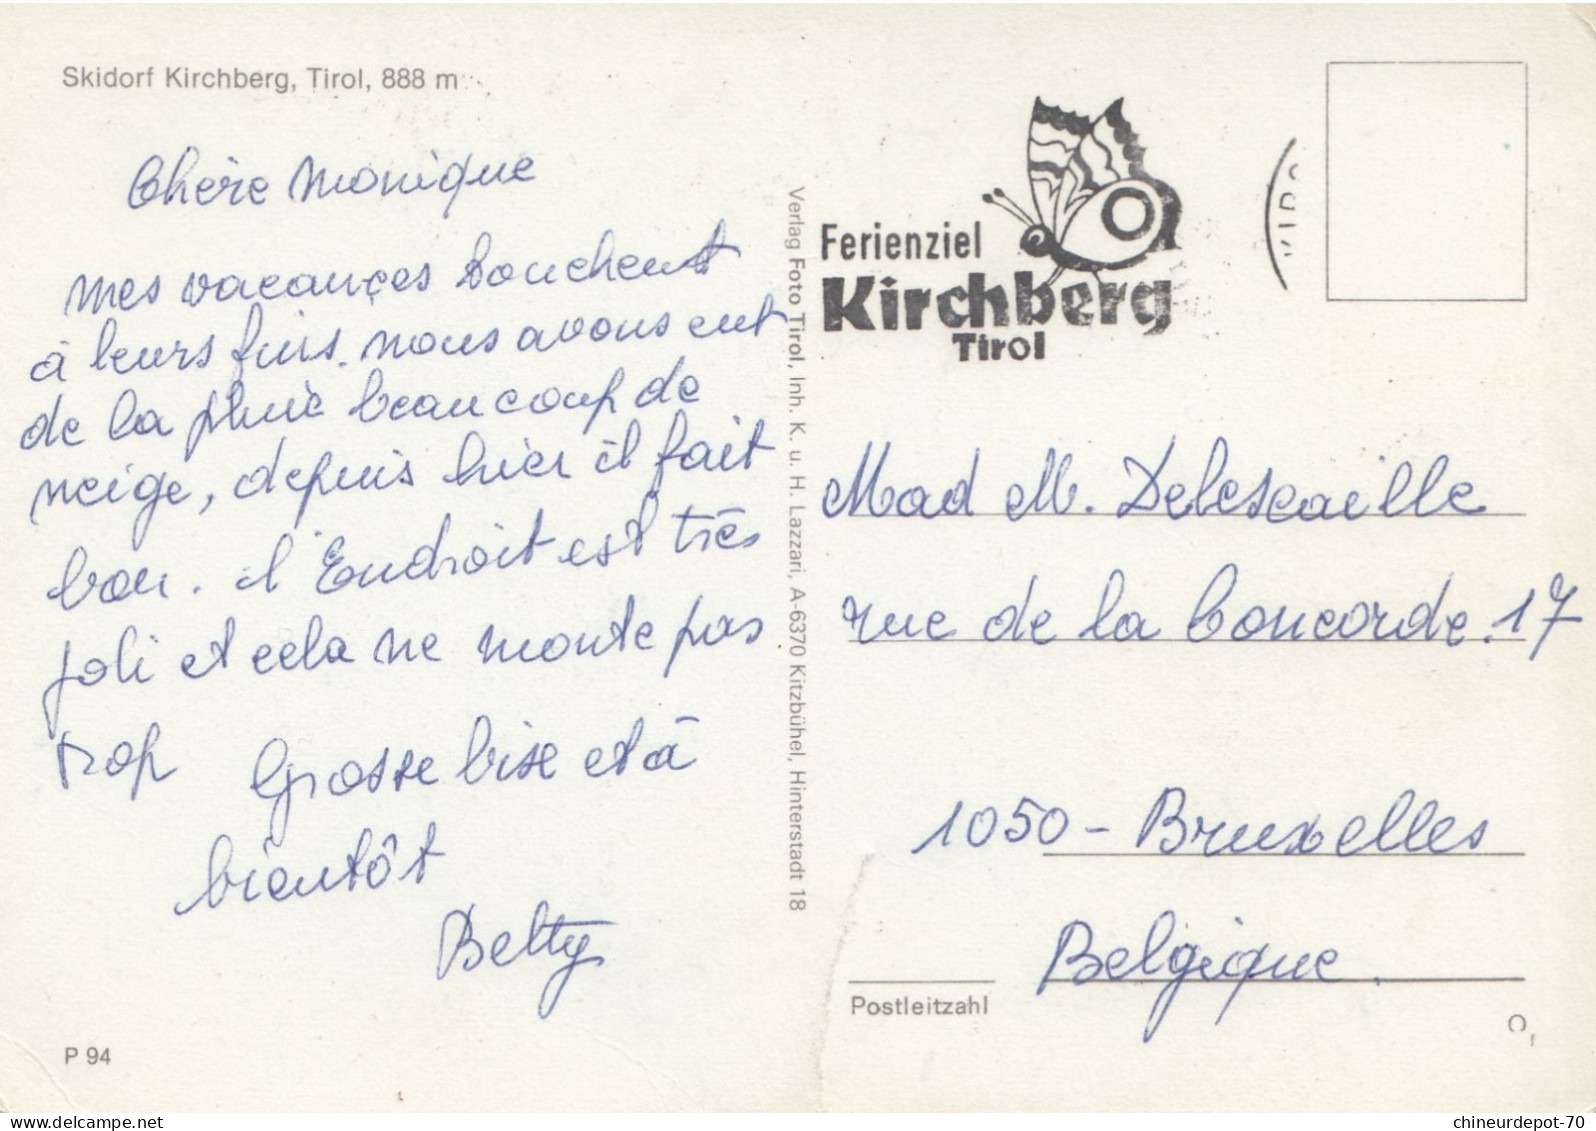 Skidorf Kirchberg, Tirol, 888 m
Chère Monique
mes vacances touchent
à leurs fins. nous avons eut
de la pluie beaucoup de
neige, depuis hier il fait
bon. l'Endroit est très
joli et cela ne monte pas
trop Grosse bise et à
bientôt
Betty
P 94
Verlag Foto Tirol, Inh. K. u. H. Lazzari, A-6370 Kitzbühel, Hinterstadt 18
Ferienziel
Kirchberg
Tirol
Mad M. Delescaille
rue de la Concorde. 17
1050 - Bruxelles
Belgique.
Postleitzahl
delcampe.net
chineurdepot-70